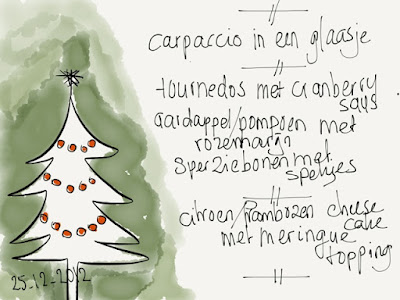 carpaccio in een glaasje
tournedos met cranberry
saus
aardappel/pompoen met
rozemarijn
sperziebonen met
spekjes
citroen/frambozen cheese
cake
met meringue
topping
25-12-2012